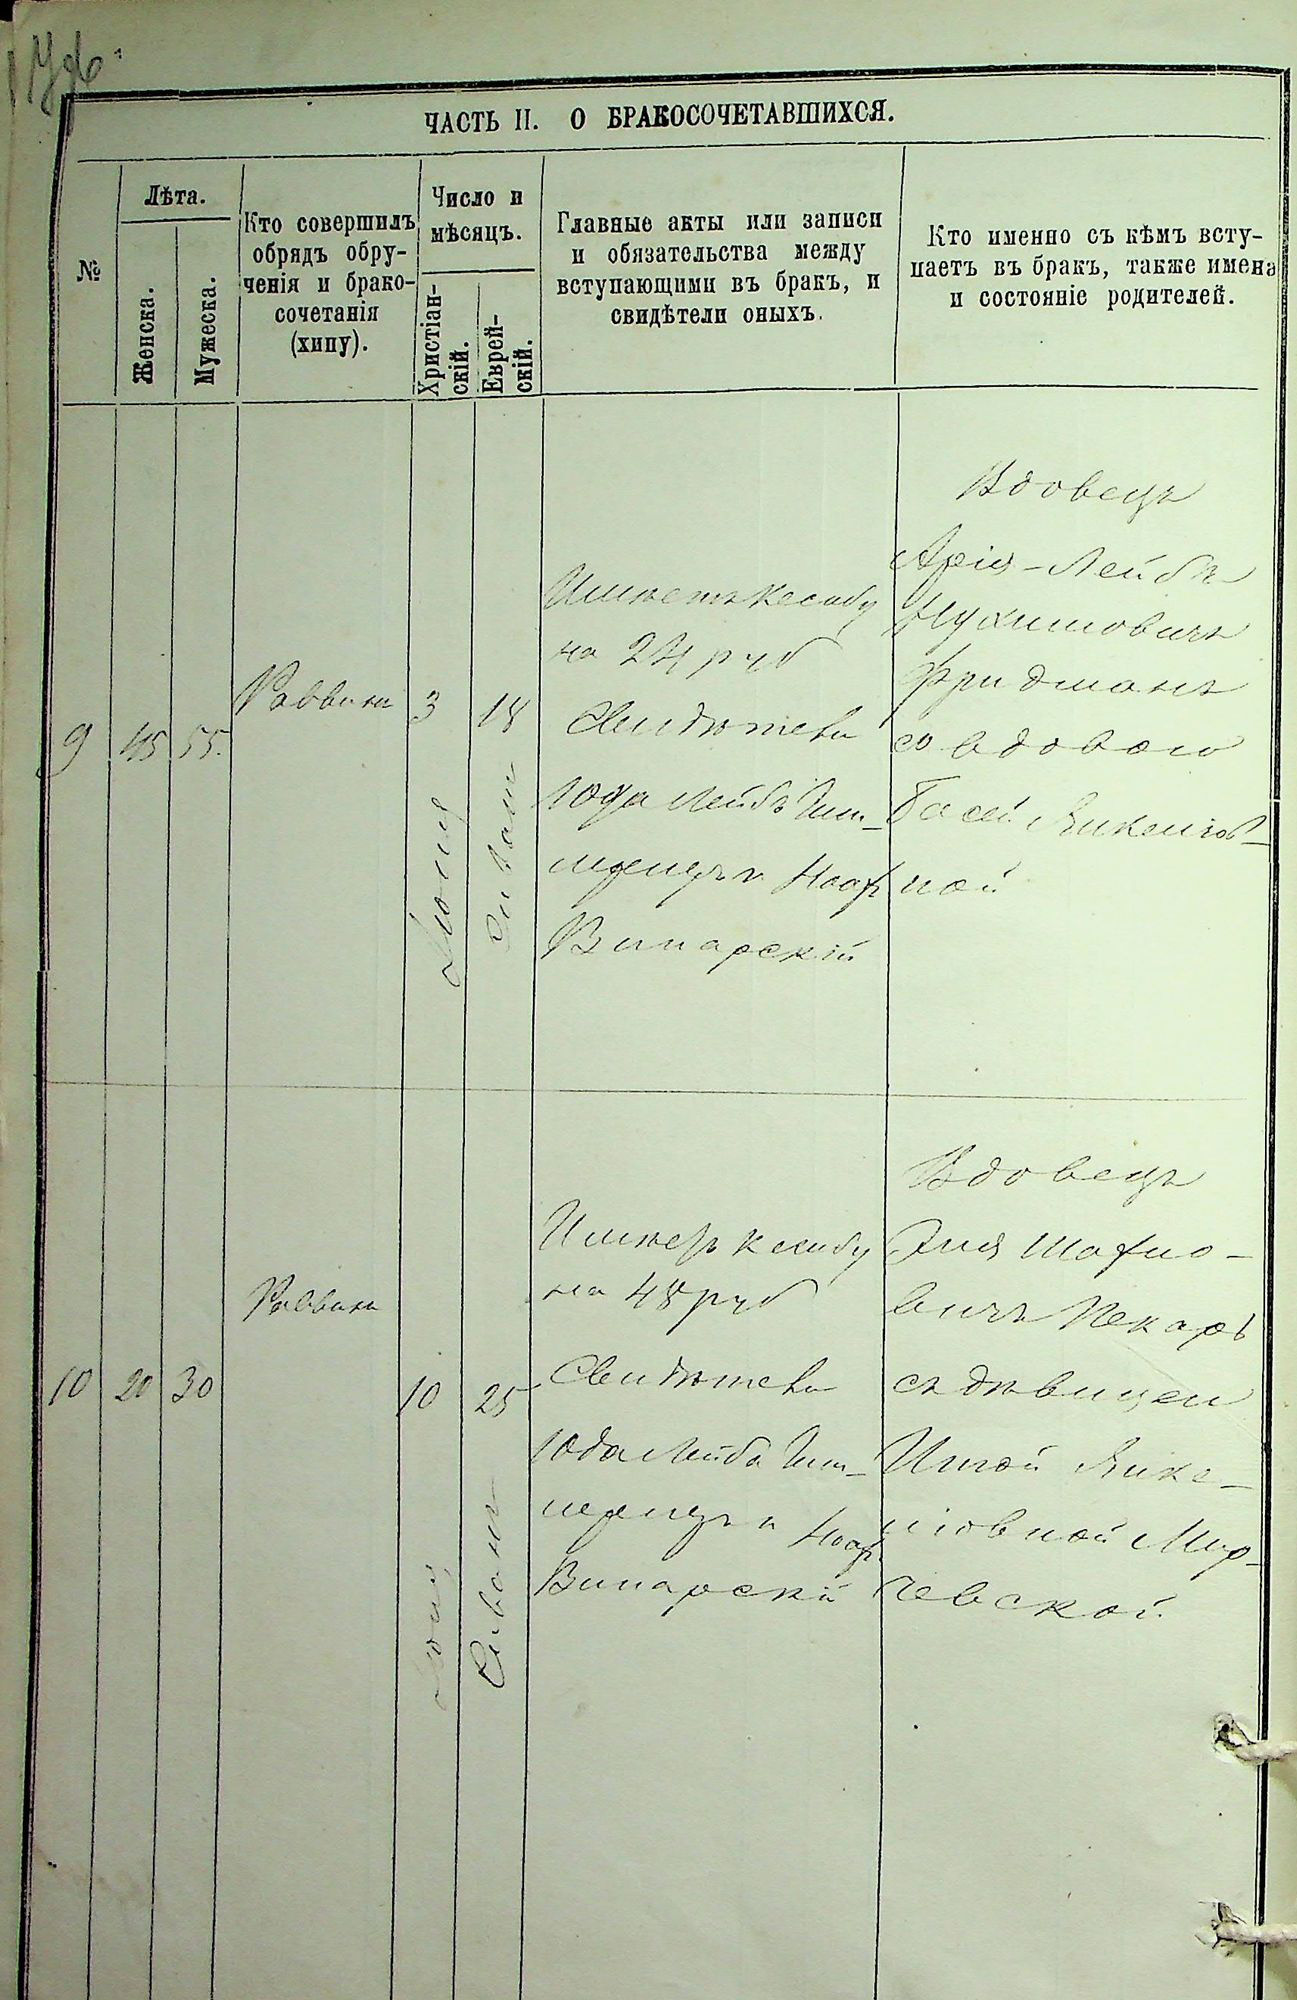 ЧАСТЬ II. О БРАКОСОЧЕТАВШИХСЯ.
№
Лѣта.
Женска.
Мужеска.
Кто совершилъ
обрядъ обру-
ченія и брако-
сочетанія
(хипу).
Число и
мѣсяцъ.
Христіан-
скій.
Еврей-
скій.
Главные акты или записи
и обязательства между
вступающими въ бракъ, и
свидѣтели оныхъ.
Кто именно съ кѣмъ всту-
паетъ въ бракъ, также имена
и состояніе родителей.
9
45
55.
Раввинъ
3
Іюня
18
Сиванъ
Имѣетъ кесибу
на 24 руб
Свидѣтели
Юда Лейбъ
и
Винарскій
Вдовецъ
Арія-Лейбъ
Нухимовичъ
Фридманъ
со вдовою
Басей Янкелев-
ной
10
20
30
Раввинъ
10
Іюня
25
Сиванъ
Имѣетъ кесибу
на 48 руб
Свидѣтели
Юда Лейба
и
Винарскій
Вдовецъ
Эля
вичъ Пекарь
съ дѣвицей
Янке-
левной Мир-
чевской.